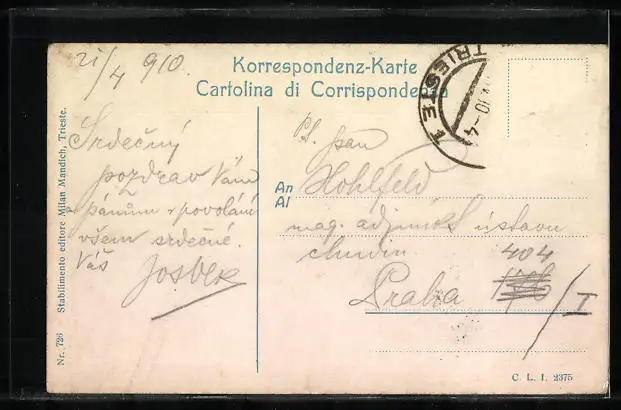 21/4 910.
Korrespondenz-Karte
Cartolina di Corrispondenza
TRIESTE 1
Srdečný
pozdrav Vám
pánům povolání
všem srdečné.
Váš
Josbek
Pl. pan
An Hohlfeld
Al
mag. adjunkt ústavu
404
Praha
/I
Nr. 726 Stabilimento editore Milan Mandich, Trieste.
C. L. I. 2375